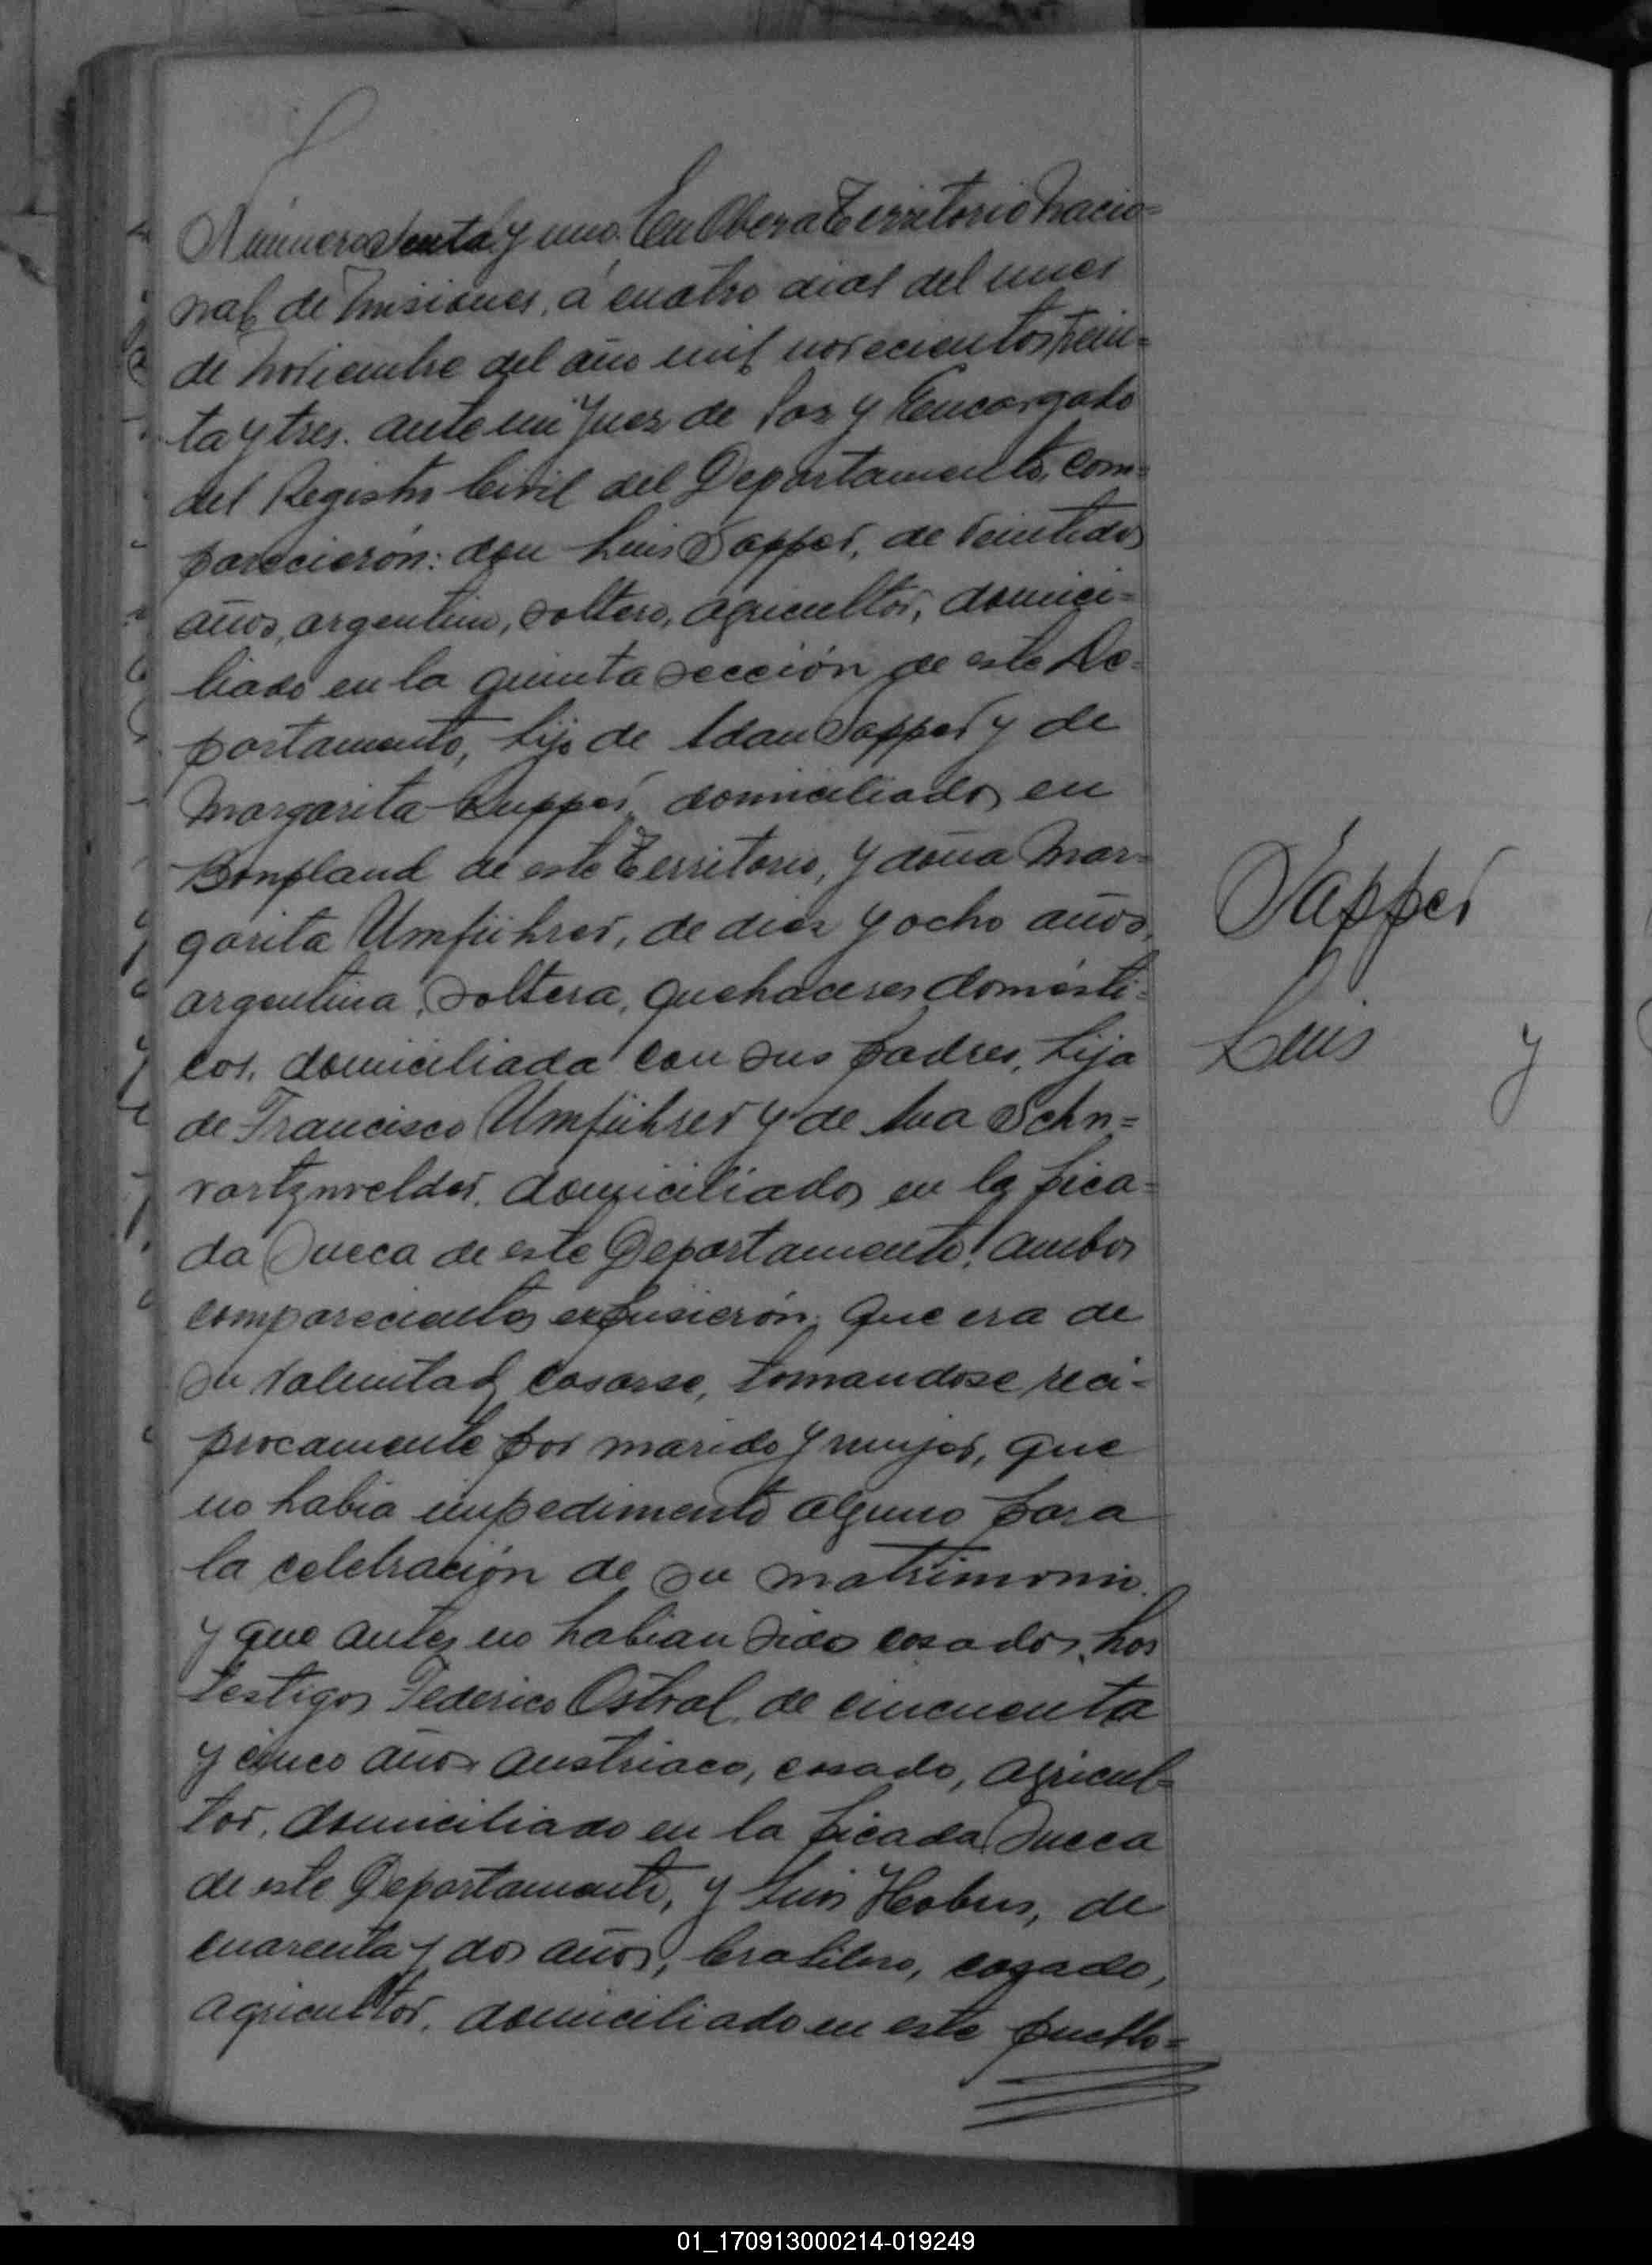 Número setenta y uno. En Obera Territorio Nacio=
nal de Misiones, á cuatro dias del mes
de Noviembre del año mil novecientos trein=
ta y tres. ante mi Juez de Paz y Encargado
del Registro Civil del Departamento, com=
parecierón: don Luis Sapper, de veintidos
años, argentino, soltero, agricultor, domici=
liado en la quinta sección de este De=
partamento, hijo de Adan Sapper y de
Margarita domiciliados en
Bonpland de este Territorio, y doña Mar=
garita Umführer, de diez y ocho años,
argentina, soltera, quehaceres domésti=
cos, domiciliada con sus padres, hija
de Francisco Umführer y de Ana Schn=
vartznvelder, domiciliados en la pica=
da Sueca de este Departamento, ambos
comparecientes expusierón: que era de
su voluntad casarse, tomandose reci=
procamente por marido y mujer, que
no habia impedimento alguno para
la celebración de su matrimonio.
y que antes no habian sido casados. Los
testigos Federico Ostral, de cincuenta
y cinco años austriaco, casado, agricul=
tor, domiciliado en la picada Sueca
de este Departamento, y Luis Hobus, de
cuarenta y dos años, brasilero, casado,
agricultor, domiciliado en este pueblo=
Sapper
Luis y
01_170913000214-019249